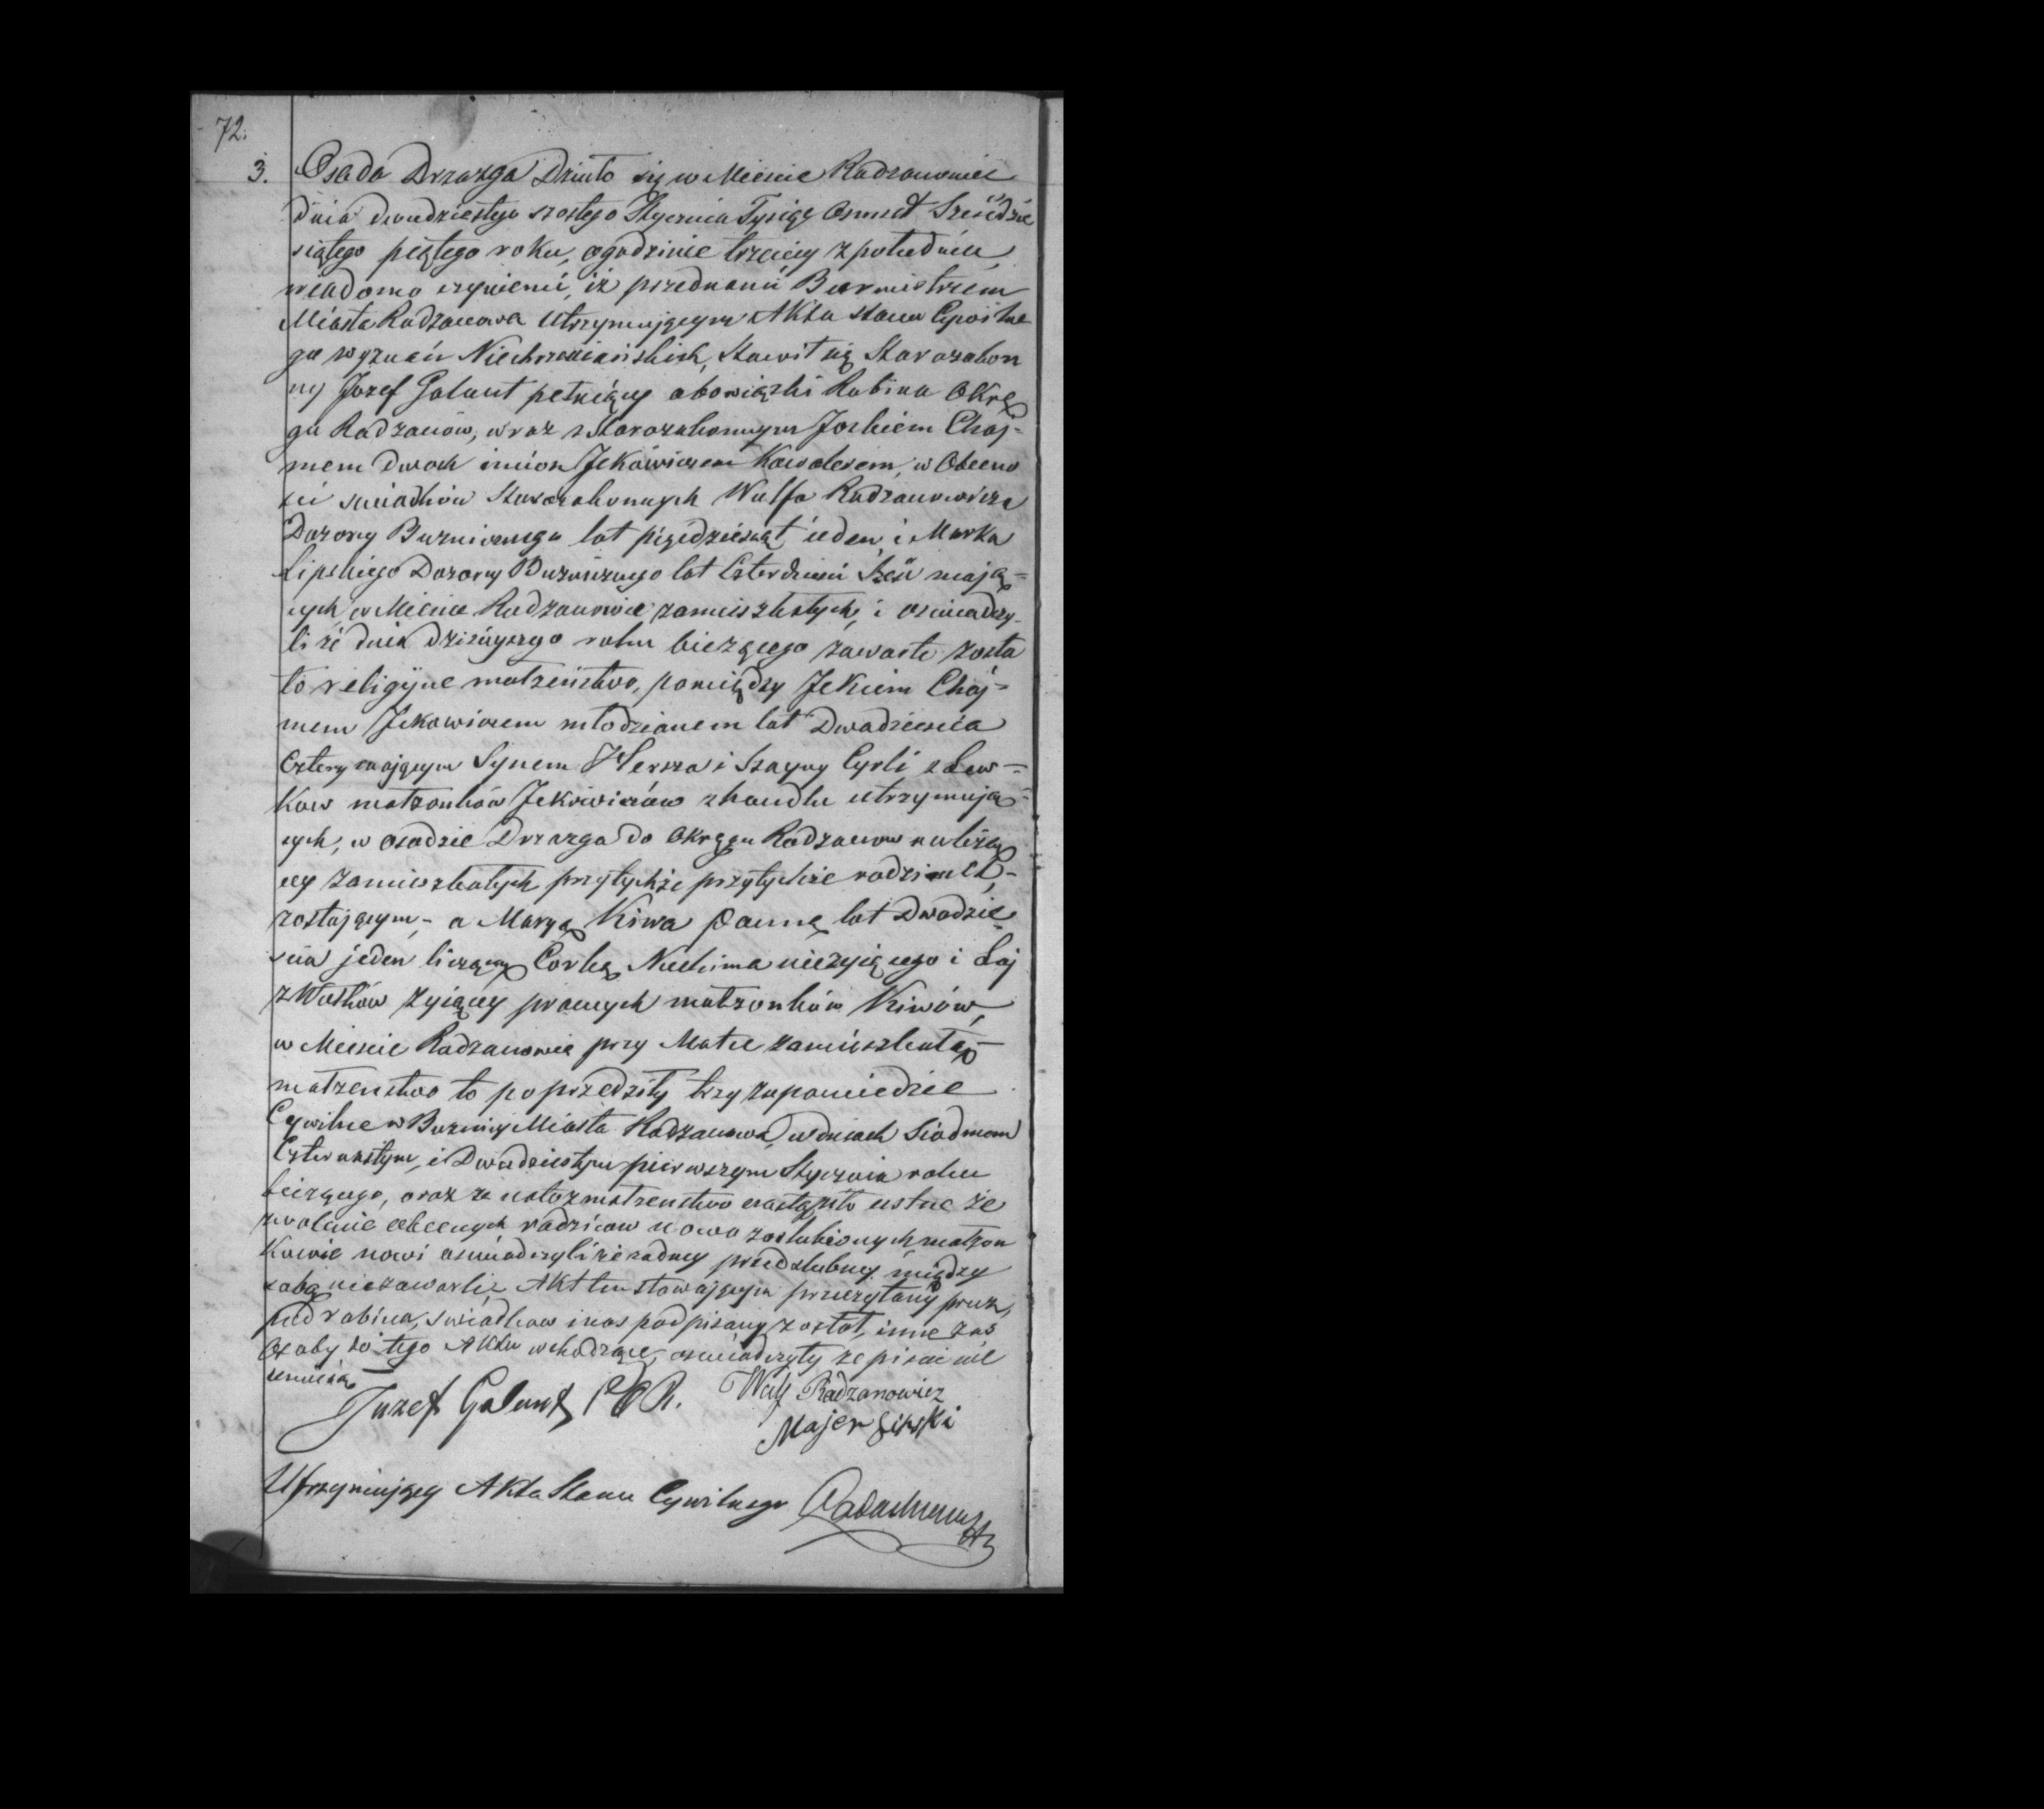 72.
3. Osada Drzazga Działo się w Mieście Radzanowie
dnia dwudziestego szostego Stycznia Tysiąc Osmset Sześćdzie
siątego piątego roku, ogodzinie trzeciey z południa,
wiadomo czyniemy, iż przednami Burmistrzem
Miasta Radzanowa Utrzymującym Akta Stanu Cywilne
go wyznań Niechrześciańskich, Stawił się Starozakon
ny Jozef Galant pełniący obowiązki Rabina Okrę
gu Radzanów, wraz z Starozakonnym Joskiem Chaj-
mem dwoch imion Jckowiczem Kawalerem, w Obecno
sci swiadków Starozakonnych Wulfa Radzanowicza
Dozorcy Bużnicznego lat pięćdziesiąt ieden i Marka
Lipskiego Dozorcy Bużnicznego lat Czterdzieści Sześć mają-
cych w Mieście Radzanowie zamieszkałych, i oswiadczy-
li że dnia dzisiejszego roku bieżącego zawarte zosta
ło religijne małżeństwo, pomiędzy Jckiem Chaj-
mem Jckowiczem młodzianem lat Dwadzieścia
Cztery mającym Synem Hersza i Szayny Cyrli z Lew-
ków małżonków Jckowiczów z handlu utrzymują-
cych, w osadzie Drzazga do Okręgu Radzanow należą
cey zamieszkałych przytychże przytychże rodzicach,-
zostającym,- a Maryą Kiwa Panną lat Dwadzie-
ścia jeden liczącą Corką Nuchima nieżyiącego i Łaj
z Wosków żyiącey prawych małżonków Kiwów,
w Mieście Radzanowie przy Matce zamieszkałą-
małżenstwo to poprzedziły trzy zapowiedzie
Cywilne w Bużnicy Miasta Radzanowa, w dniach Siodmem
Czternastym, i Dwudziestym pierwszym Stycznia roku
bieżącego, oraz że na to małżenstwo nastąpiło ustne ze
zwolenie obecnych rodziców nowo zaslubionych małżon
kowie nowi oswiadczyli że żadney przedslubney między
sobą niezawarli, Akt ten stawającym przeczytany przez,
nas rabina, swiadkow i nas podpisany został, inne zas
Osoby do tego Aktu wchodzące, oswiadczyły że pisać nie
umieią
Juzef Galant P O R. Wulf Radzanowicz
Majer Lipski
Utrzymujący Akta Stanu Cywilnego